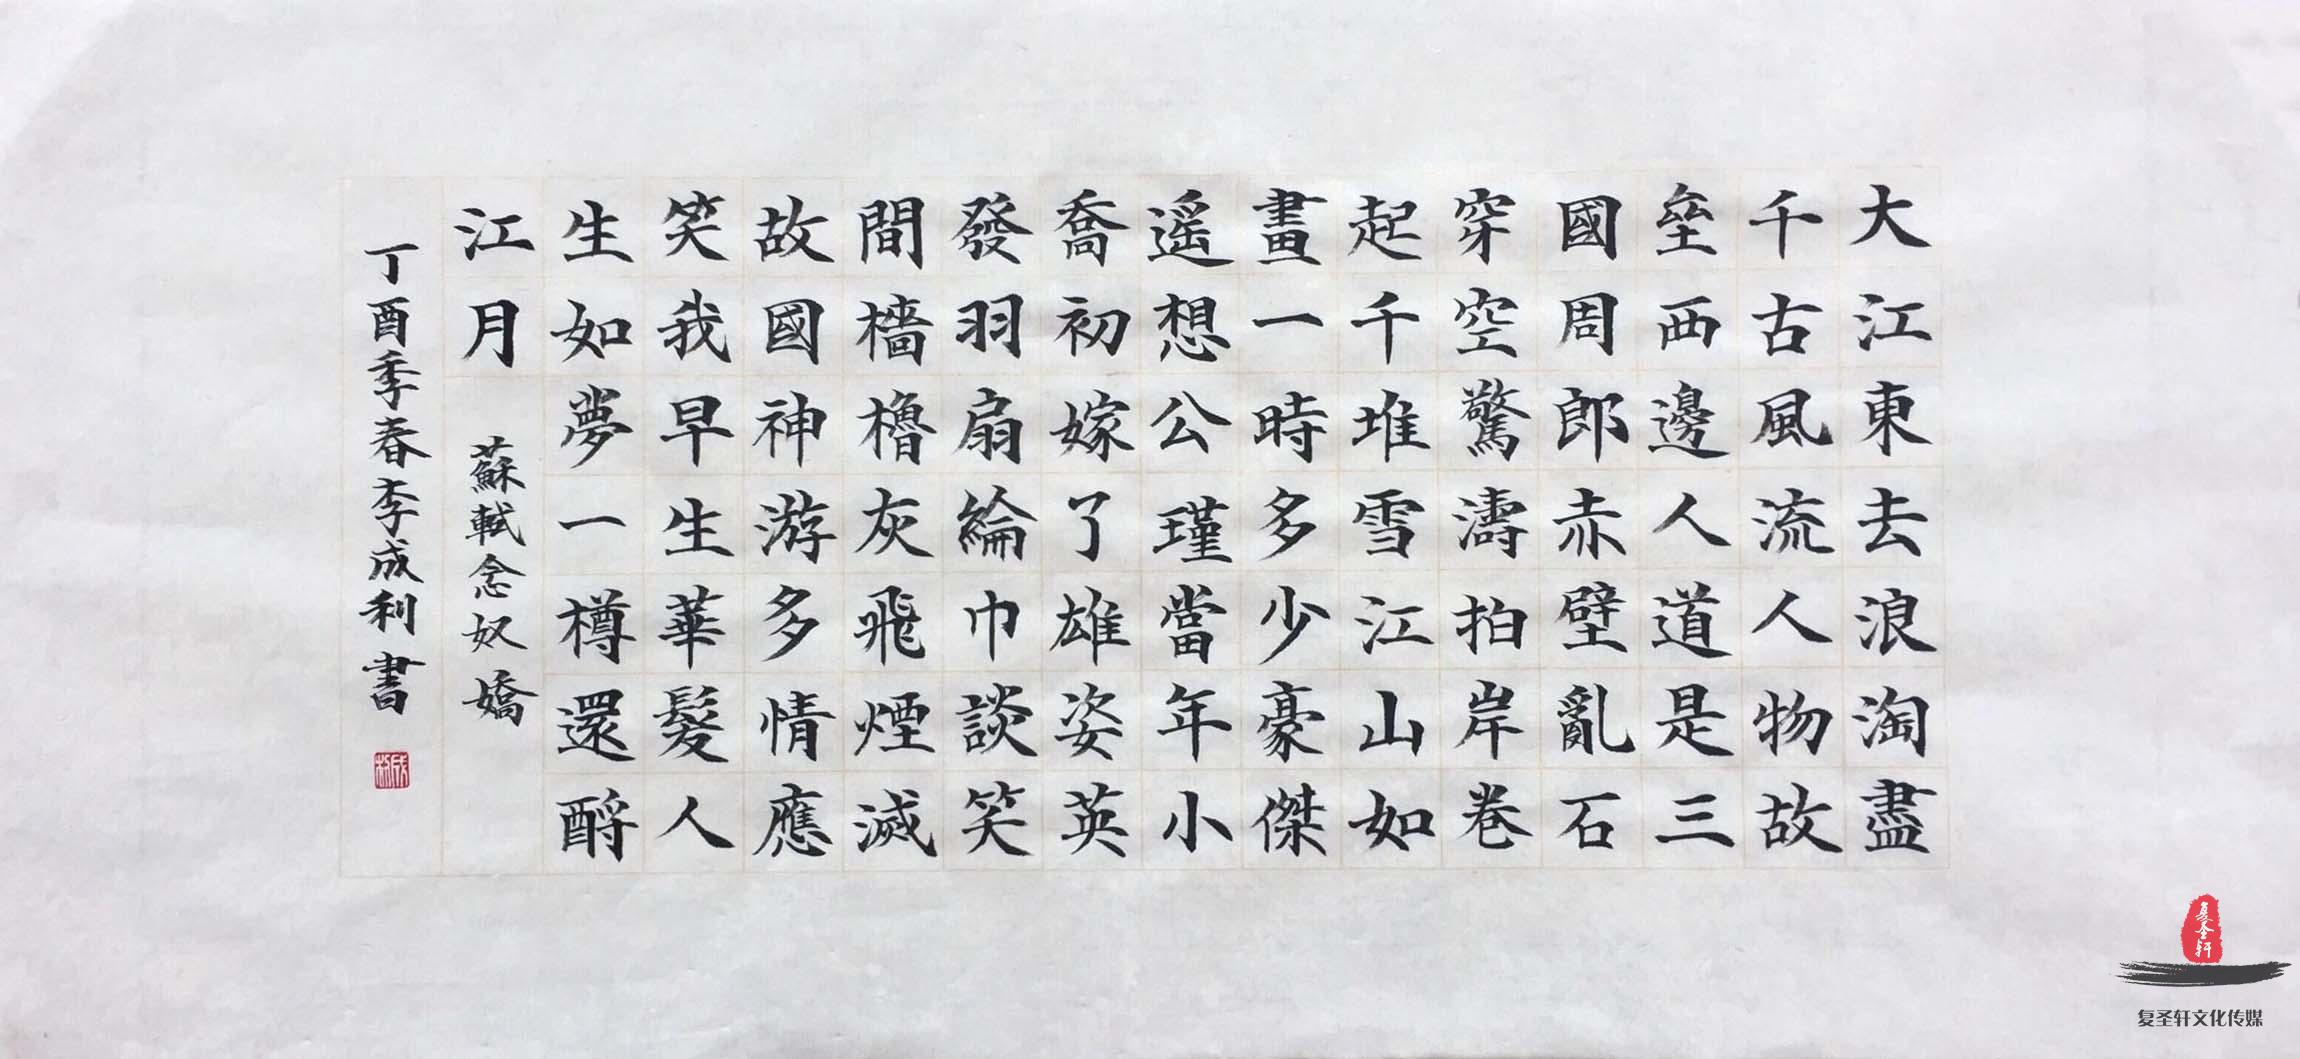 大江東去浪淘盡
千古風流人物故
垒西邊人道是三
國周郎赤壁亂石
穿空驚濤拍岸卷
起千堆雪江山如
畫一時多少豪傑
遥想公瑾當年小
喬初嫁了雄姿英
發羽扇綸巾談笑
間檣櫓灰飛煙滅
故國神游多情應
笑我早生華髮人
生如夢一樽還酹
江月
蘇軾念奴嬌
丁酉季春李成利書
成利
复圣轩
复圣轩文化传媒